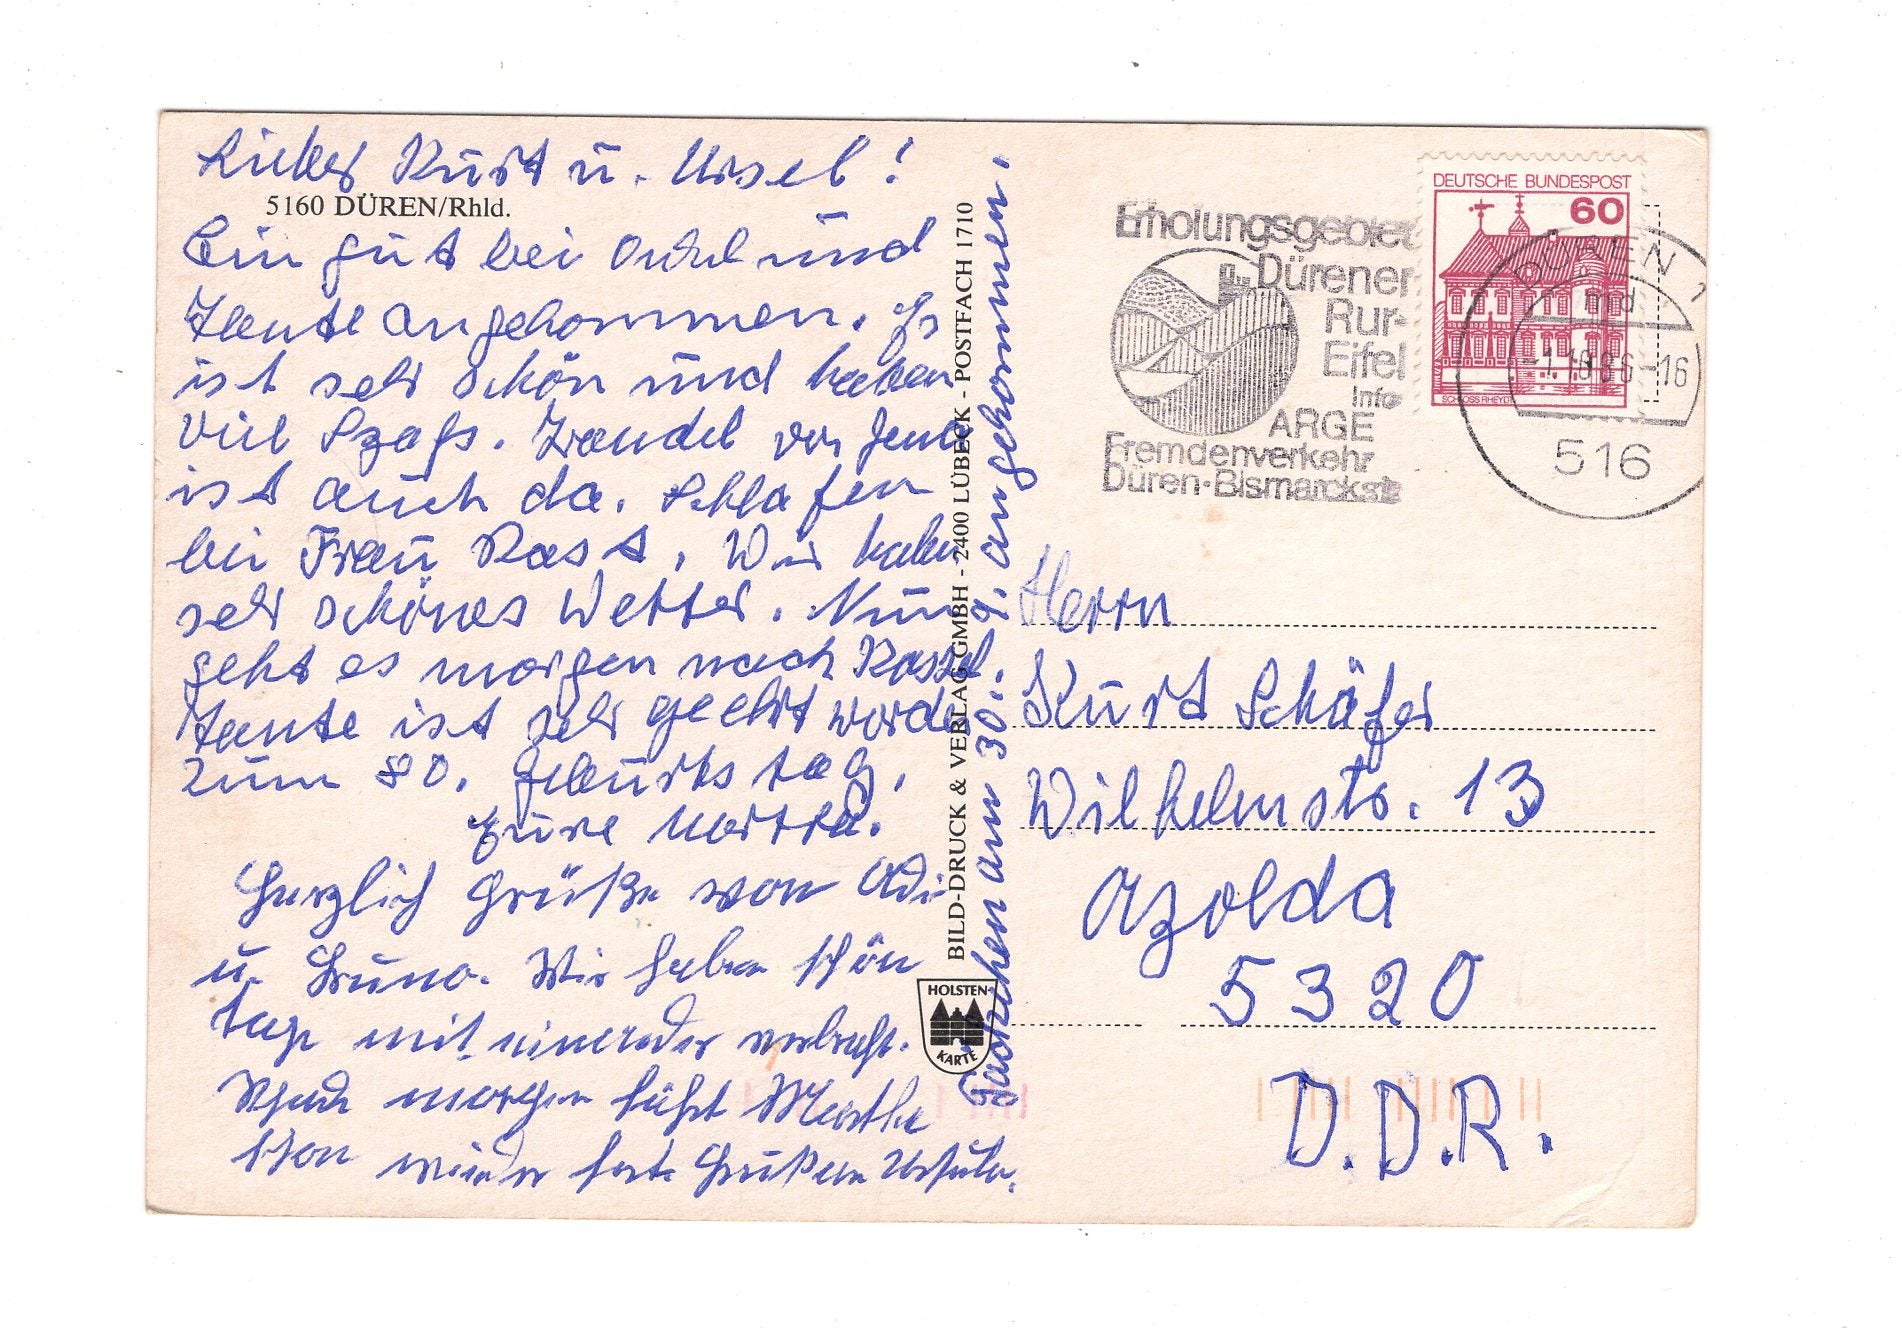 Lieber Kurt u. Ursel!
5160 DÜREN/Rhld.
Bin gut bei Onkel und
Tante angekommen. Es
ist sehr schön und haben
viel Spaß. von Jena
ist auch da. Schlafen
bei Frau Rast. Wir haben
sehr schönes Wetter. Nun
geht es morgen nach Kassel
Tante ist sehr geehrt worden
zum 80. Geburtstag.
Eure Martha.
Herzlich Grüße von Adi
u. Bruno. Wir haben schön
tage mit einander verbracht.
morgen fährt Martha
schon wieder fort. Ursula.
Päckchen am 30.9. angekommen.
BILD-DRUCK & VERLAG GMBH - 2400 LÜBECK - POSTFACH 1710
HOLSTEN-
KARTE
Erholungsgebiet
Dürener
Rur-
Eifel
Info
ARGE
Fremdenverkehr
Düren-Bismarckstr
DEUTSCHE BUNDESPOST
60
SCHLOSS RHEYDT
DÜREN 1
md
-1.10.86-16
516
Herrn
Kurt Schäfer
Wilhelmstr. 13
Apolda
5320
D.D.R.